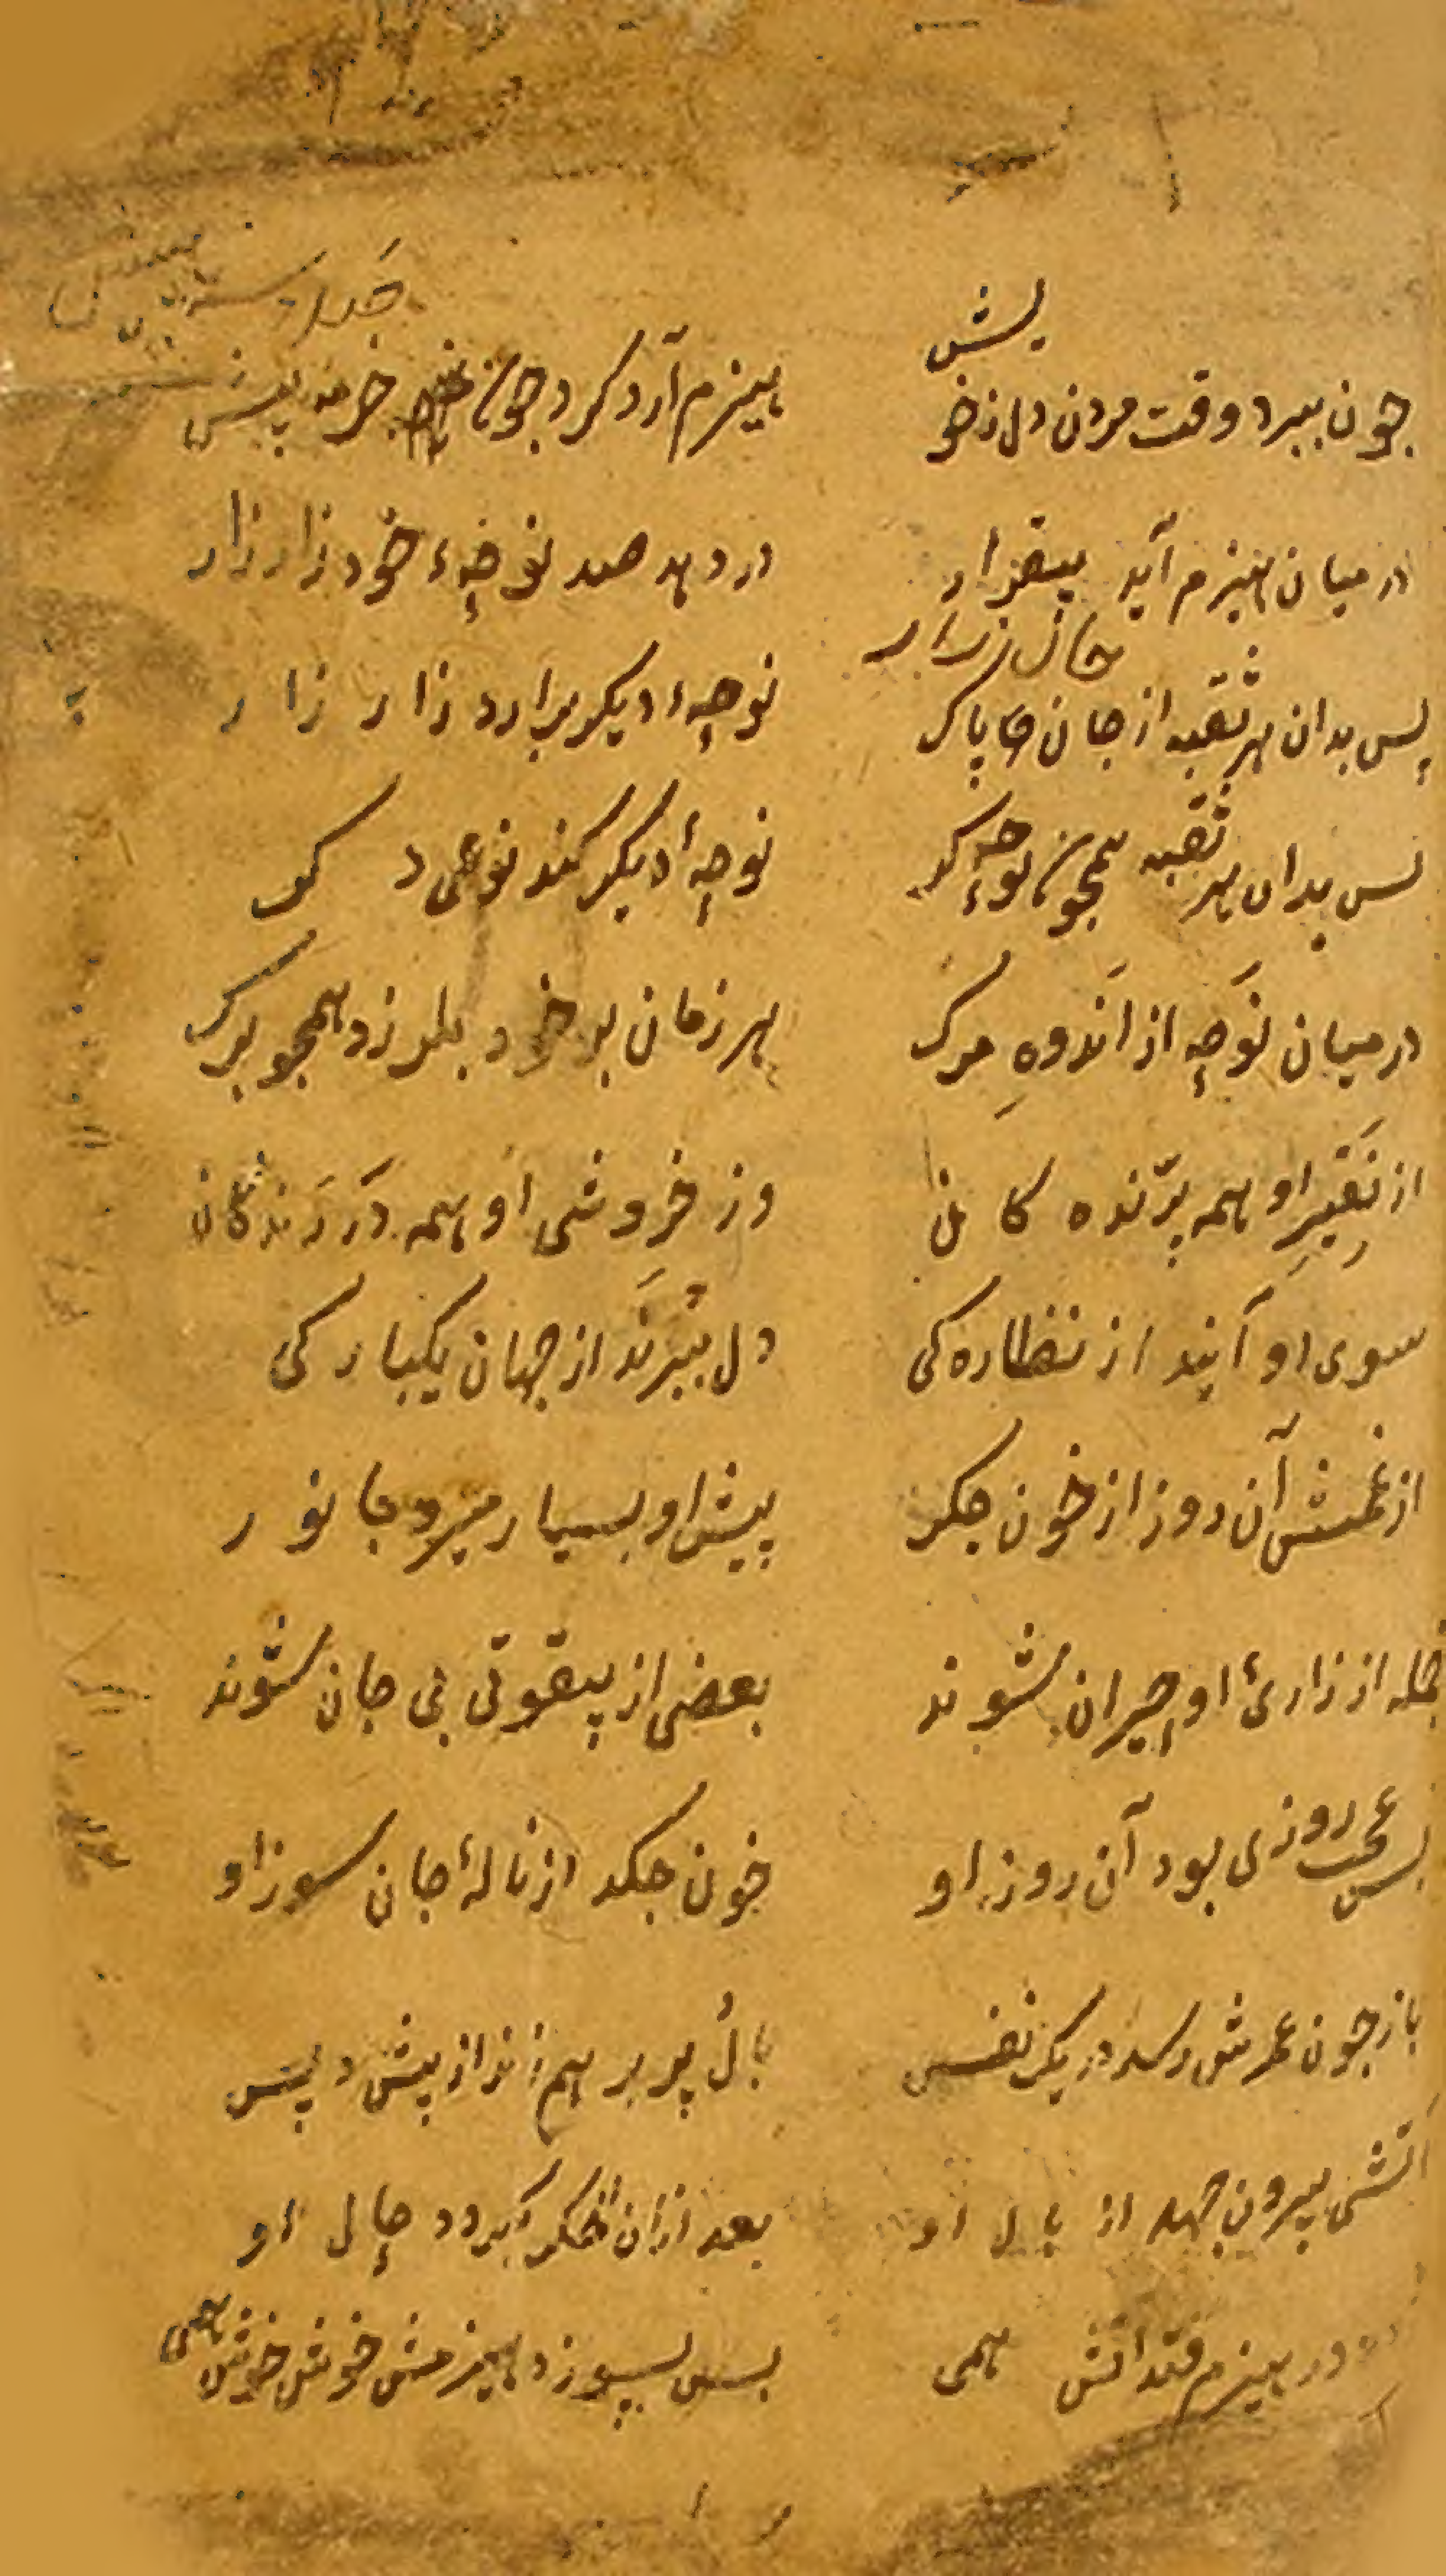 جون ببرد وقت مردن دل زخویش هیزم آرد کرد جون خرمنه پیش
در میان هیزم آید بیقرار در دهد صد نوحهٔ خود زار زار
جان زار
پس بدان هر ثقبه از جان پاک نوحهٔ دیکر برارد زار زار
بس بدان هر ثقبه همجون نوحه کر نوحهٔ دیکر کند نوعی دکر
در میان نوحه از اندوهِ مرک هر زمان بر خود بلرزد همجو برک
از نَفیرِ او همه پرّنده کان وز خروشِ او همه دَرّندکان
سوی او آیند از نظاره کی دل ببرند از جهان یکبارکی
از غمش آن روز از خون جکر پیش او بسیار میرد جانور
جمله از زاریٔ او حیران شوند بعضی از بیقوتی بی جان شوند
بس عجب روزی بود آن روز او خون جکد از نالهٔ جان سوز او
باز جون عمرش رسد در یک نفس بالُ پر بر هم زند از پیش و پس
آتشی بیرون جهد از بال او بعد ازان آتش بکردد حال او
در هیزم فتد آتش همی بس بسوزد هیزمش خوش خوش همی